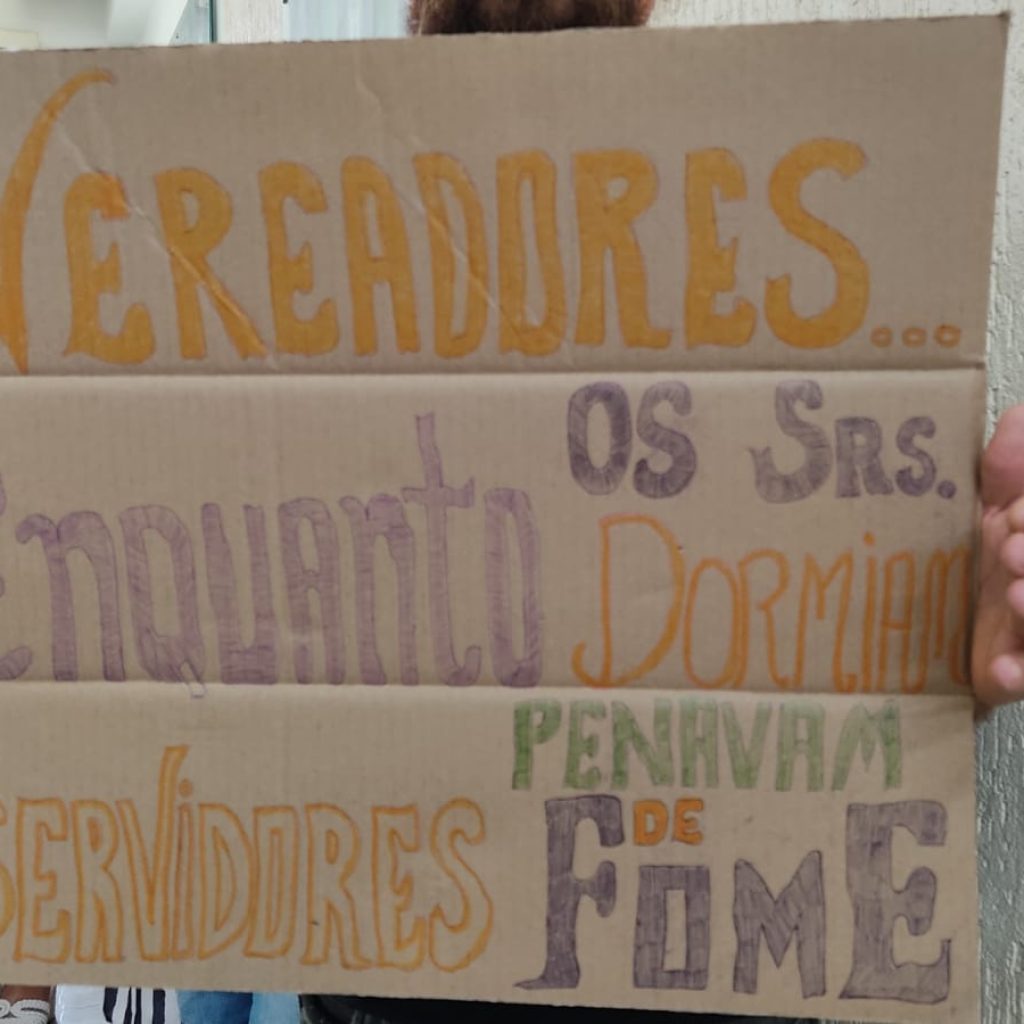 VEREADORES...
Enquanto OS SRS.
DORMiAM
SERViDORES PENAVAM
DE
FOME